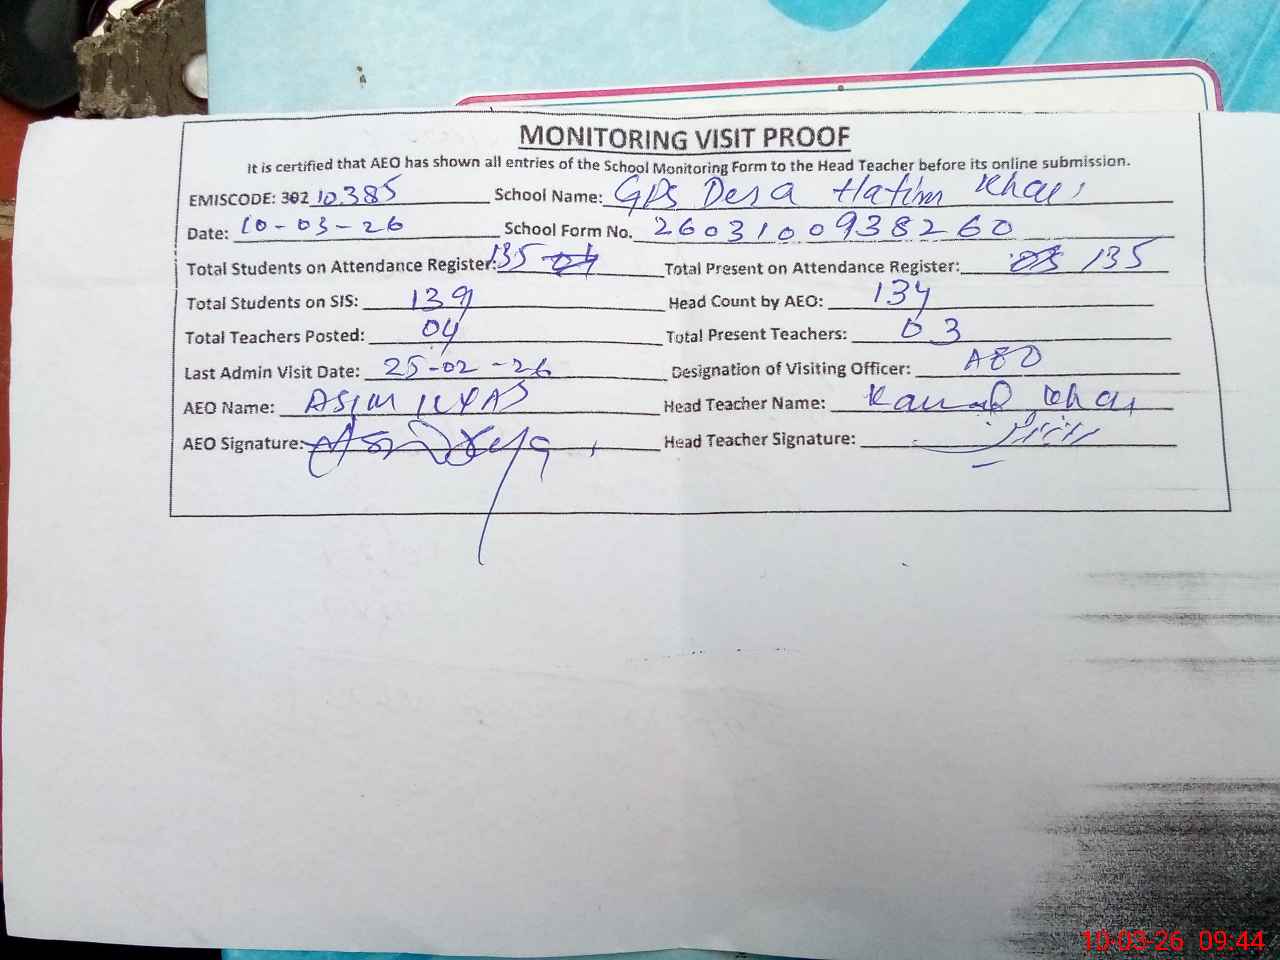 MONITORING VISIT PROOF
It is certified that AEO has shown all entries of the School Monitoring Form to the Head Teacher before its online submission.
EMISCODE: 302 10385 School Name: GPS Dera Hatim Khan
Date: 10-03-26 School Form No. 2603100938260
Total Students on Attendance Register: 135 Total Present on Attendance Register: 135
Total Students on SIS: 139 Head Count by AEO: 134
Total Teachers Posted: 04 Total Present Teachers: 03
Last Admin Visit Date: 25-02-26 Designation of Visiting Officer: AEO
AEO Name: ASIM ILYAS Head Teacher Name: Khan
AEO Signature: Head Teacher Signature:
10-03-26 09:44